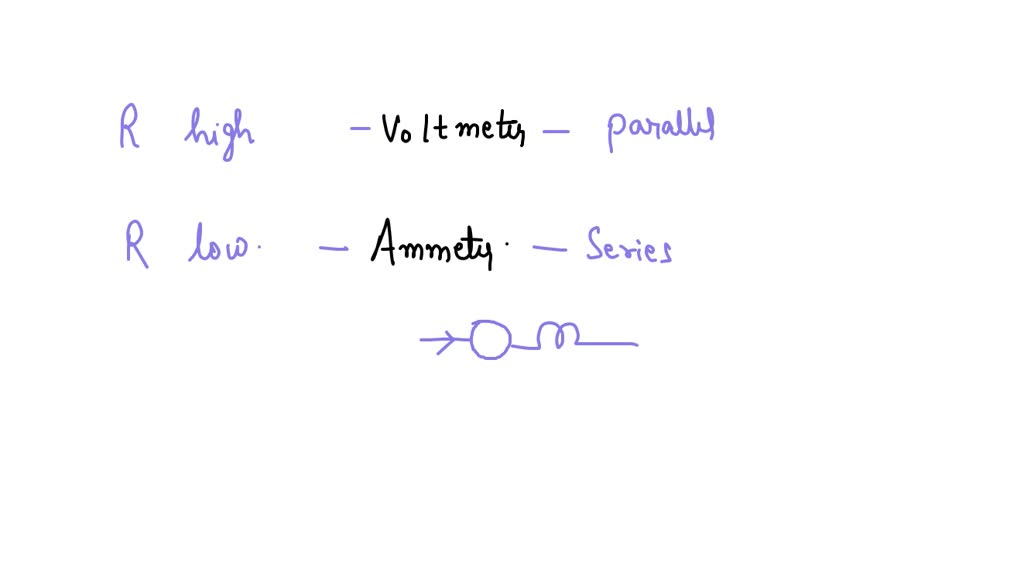 R high - Voltmeter - parallel
R low. - Ammeter. - Series